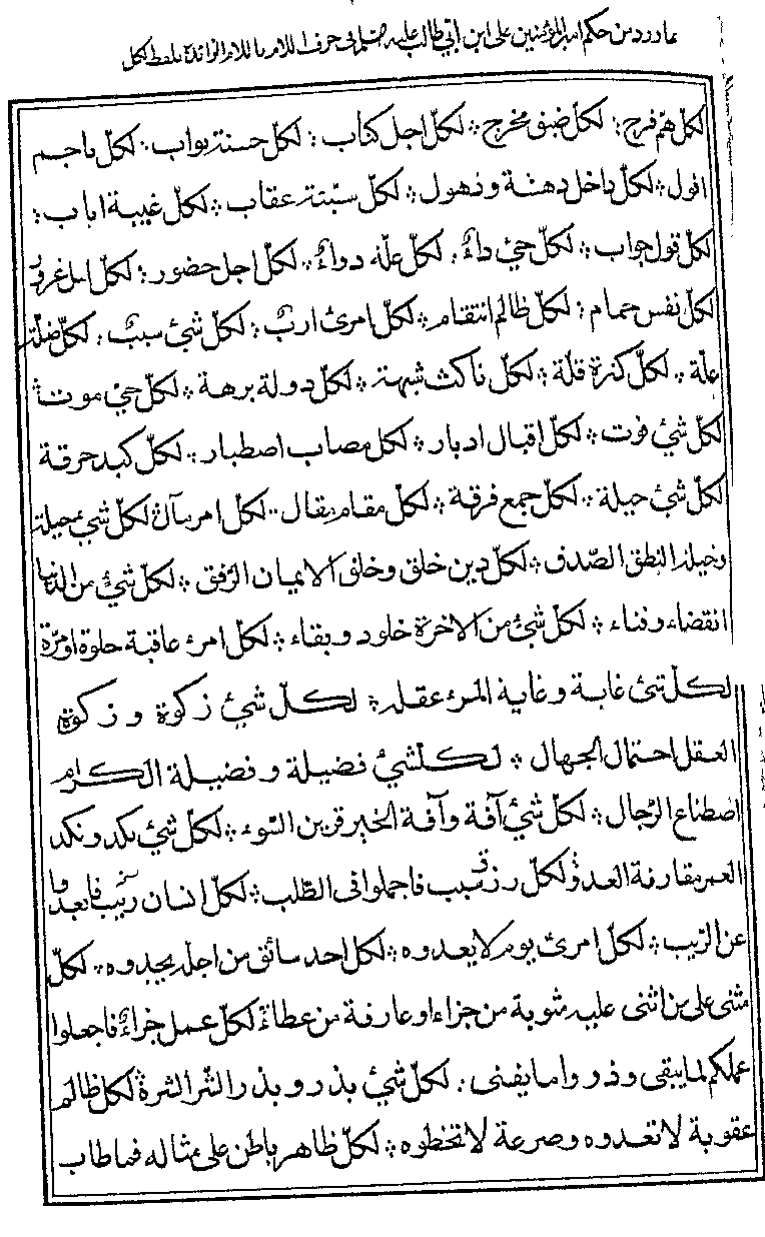 مما ورد من حكم امير المؤمنين على ابن أبي طالب عليه السلام فى حرف اللام باللام الزائدة بلفظ لكل
لكلّ همّ فرج ؛ لكلّ ضيق مخرج ؛ لكلّ اجل كتاب ؛ لكلّ حسنة ثواب ؛ لكلّ ناجم
افول ؛ لكلّ داخل دهشة وذهول ؛ لكلّ سيّئة عقاب ؛ لكلّ غيبة اياب ؛
لكلّ قول جواب ؛ لكلّ حيّ داءٌ ؛ لكلّ علّة دواءٌ ؛ لكلّ اجل حضور ؛ لكلّ امل غرور
لكلّ نفس حمام ؛ لكلّ ظالم انتقام ؛ لكلّ امرئ اربٌ ؛ لكلّ شئ سببٌ ؛ لكلّ ضلّة
علّة ؛ لكلّ كثرة قلّة ؛ لكلّ ناكث شبهة ؛ لكلّ دولة برهة ؛ لكلّ حيّ موت ؛
لكلّ شئ فوت ؛ لكلّ اقبال ادبار ؛ لكلّ مصاب اصطبار ؛ لكلّ كبد حرقة
لكلّ شئ حيلة ؛ لكلّ جمع فرقة ؛ لكلّ مقام مقال ؛ لكلّ امر مآل ؛ لكلّ شئ حيلة
وحيلة النطق الصّدق ؛ لكلّ دين خلق وخلق الايمان الرّفق ؛ لكلّ شئ من الدنيا
انقضاء وفناء ؛ لكلّ شئ من الاخرة خلود وبقاء ؛ لكلّ امرئ عاقبة حلوة او مرّة
لكلّ شئ غاية وغاية المرء عقله ؛ لكلّ شئ زكوة و زكوة
العقل احتمال الجهال ؛ لكلّ شئ فضيلة وفضيلة الكرام
اصطناع الرّجال ؛ لكلّ شئ آفة وآفة الخير قرين السّوء ؛ لكلّ شئ نكد ونكد
العمر مقارنة العدوّ ؛ لكلّ رزق سبب فاجملوا فى الطّلب ؛ لكلّ انسان ريب فابعدوا
عن الرّيب ؛ لكلّ امرئ يوم لا يعدوه ؛ لكل احد سائق من اجله يحدوه ؛ لكلّ
مثنى على من اثنى عليه مثوبة من جزاء او عارفة من عطاء ؛ لكلّ عمل جزاءٌ فاجعلوا
عملكم لما يبقى وذروا ما يفنى ؛ لكلّ شئ بذر وبذر الشّر الشره ؛ لكل ظالم
عقوبة لا تعدوه وصرعة لا تخطوه ؛ لكلّ ظاهر باطن على مثاله فما طاب